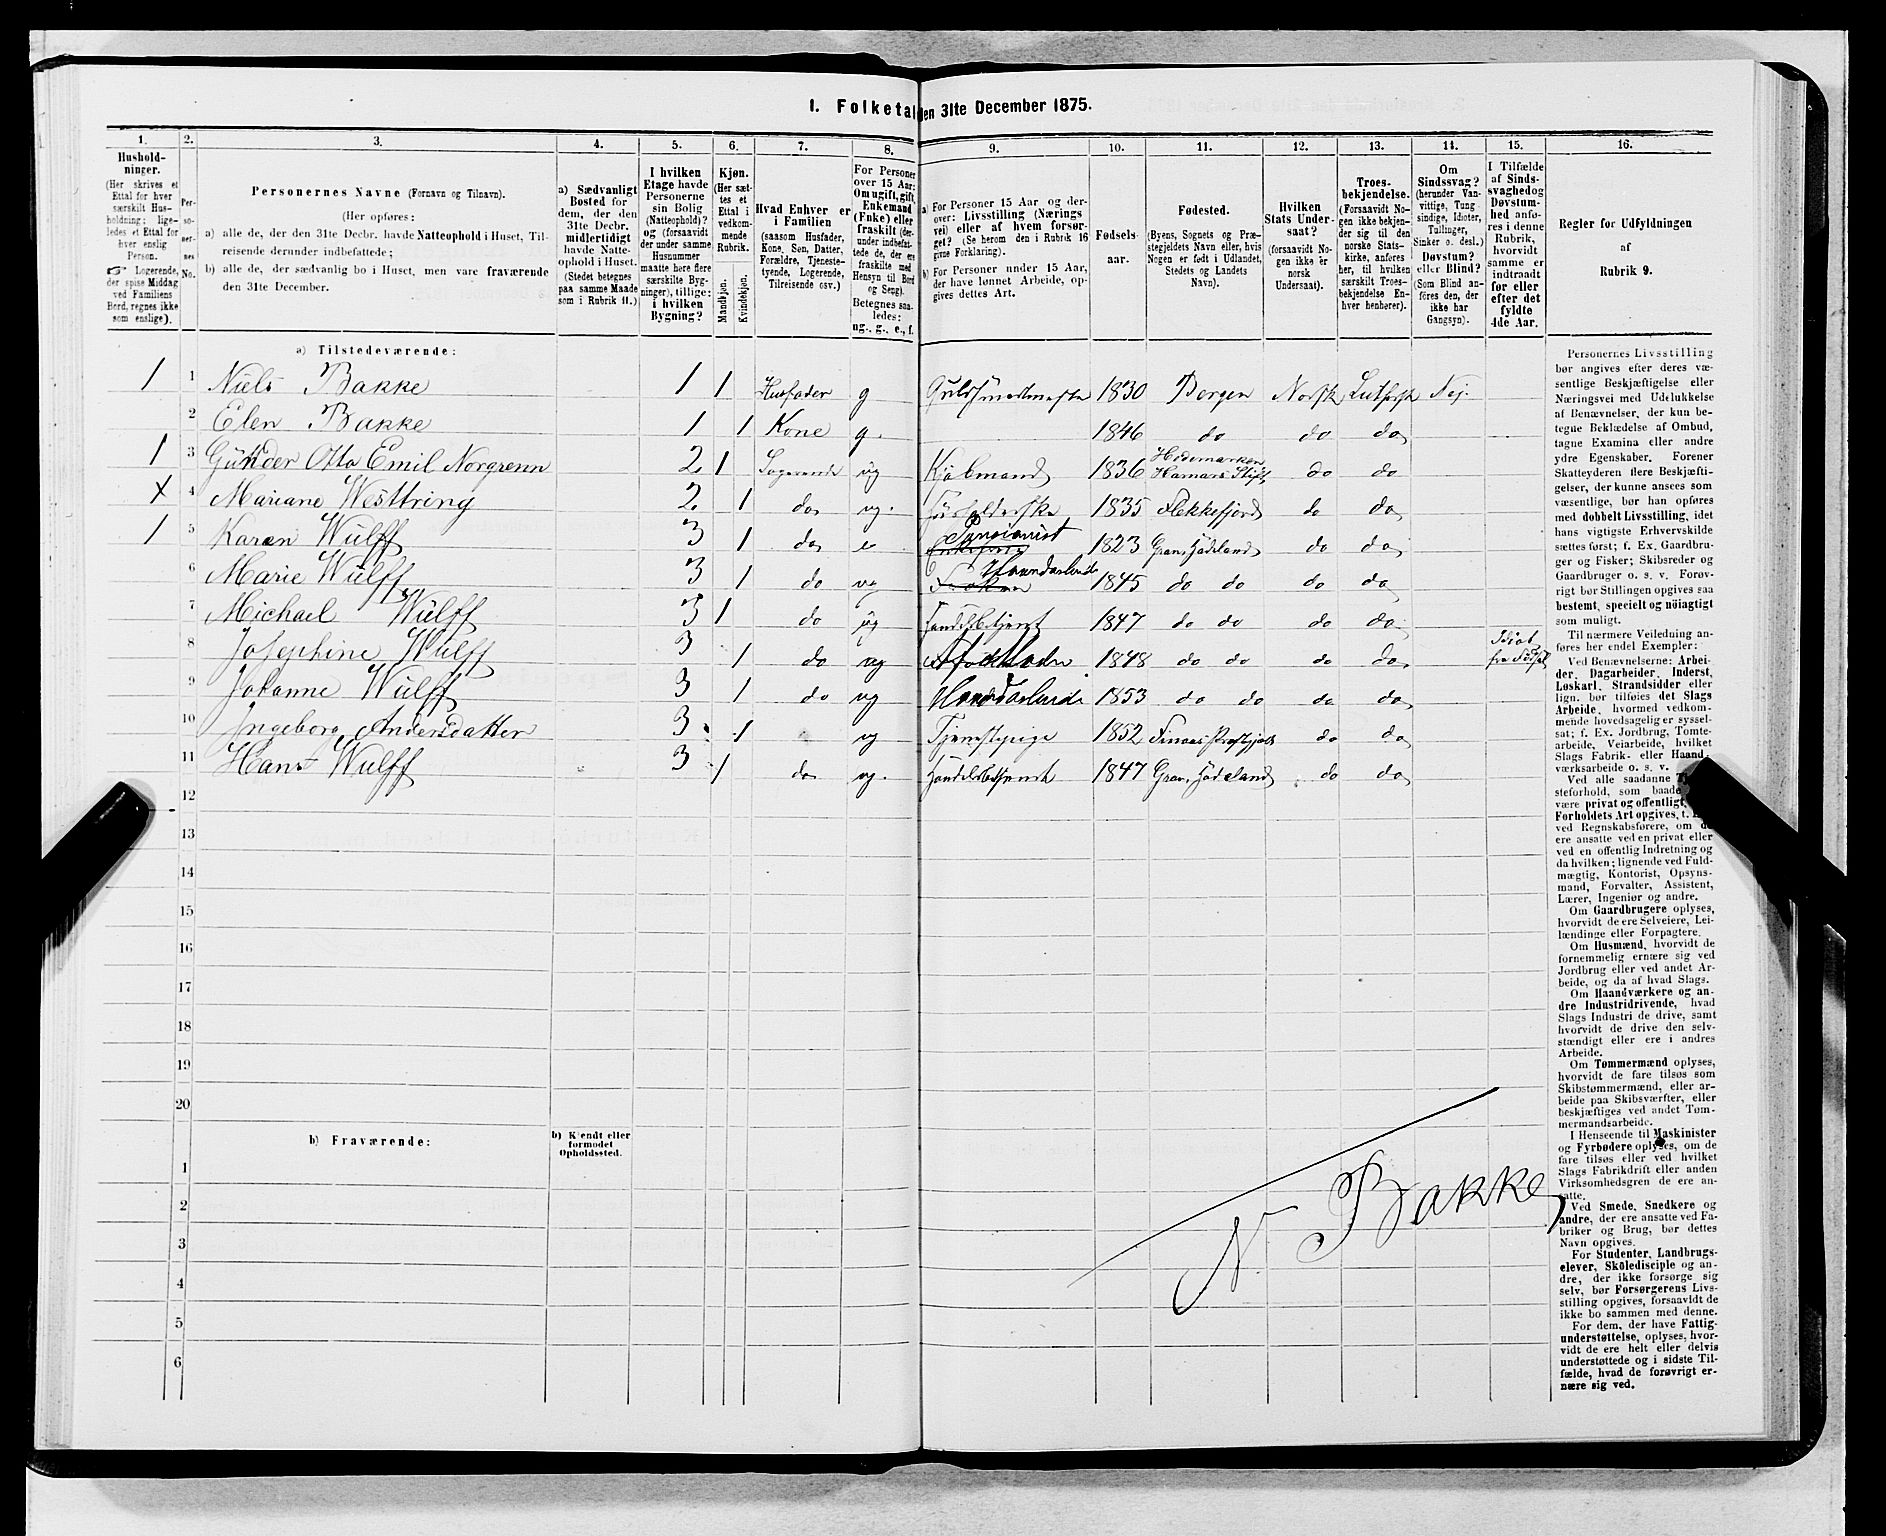 1. Folketal den 31te December 1875.
1. 2. 3. 4. 5. 6. 7. 8. 9. 10. 11. 12. 13. 14. 15. 16.
Hushold-
ninger.
(Her skrives et
Ettal for hver
særskilt Hus-
holdning; lige-
ledes et Ettal for
hver enslig
Person.
☞ Logerende,
der spise Middag
ved Familiens
Bord, regnes ikke
som enslige).
Per-
so-
ner-
nes
No.
Personernes Navne (Fornavn og Tilnavn).
(Her opføres:
a) alle de, der den 31te Decbr. havde Natteophold i Huset, Til-
reisende derunder indbefattede;
b) alle de, der sædvanlig bo i Huset, men vare fraværende
den 31te December.
a) Sædvanligt
Bosted for
dem, der den
31te Decbr.
midlertidigt
havde Natte-
ophold i Huset.
(Stedet betegnes
paa samme Maade
som i Rubrik 11.)
I hvilken
Etage havde
Personerne
sin Bolig
(Natteophold)?
og (forsaavidt
der under samme
Husnummer
maatte høre flere
særskilte Byg-
ninger), tillige:
i hvilken
Bygning?
Kjøn.
(Her sæt-
tes et
Ettal i
vedkom-
mende
Rubrik.
Mandkjøn.
Kvindekjøn.
Hvad Enhver er
i Familien
(saasom Husfader,
Kone, Søn, Datter,
Forældre, Tjeneste-
tyende, Logerende,
Tilreisende osv.)
For Personer
over 15 Aar:
Om ugift, gift,
Enkemand
(Enke) eller
fraskilt (der-
under indbefat-
tede de, der ere
fraskilte med
Hensyn til Bord
og Seng).
Betegnes saa-
ledes:
ug., g., e., f.
a) For Personer 15 Aar og der-
over: Livsstilling (Nærings
vei) eller af hvem forsør-
get? (Se herom den i Rubrik 16
givne Forklaring).
b) For Personer under 15 Aar,
der have lønnet Arbeide, op-
gives dettes Art.
Fødsels-
aar.
Fødested.
(Byens, Sognets og Præ-
stegjeldets Navn eller, hvis
Nogen er født i Udlandet,
Stedets og Landets
Navn).
Hvilken
Stats Under-
saat?
(forsaavidt No-
gen ikke er
norsk
Undersaat).
Troes-
bekjendelse.
(Forsaavidt No-
gen ikke bekjen-
der sig til den
norske Stats-
kirke, anføres
her, til hvilken
særskilt Troes-
bekjendelse En-
hver henhører).
Om
Sindssvag?
(herunder Van-
vittige, Tung
sindige, Idioter,
Tullinger,
Sinker o. desl.)
Døvstum?
eller Blind?
(Som Blind an-
føres den, der
ikke har
Gangsyn).
I Tilfælde
af Sinds-
svaghed og
Døvstum-
hed anfø-
res i denne
Rubrik,
hvorvidt
samme er
indtraadt
før eller
efter det
fyldte
4de Aar.
Regler for Udfyldningen
af
Rubrik 9.
a) Tilstedeværende:
1 1 Niels Bakke 1 1 Husfader g Guldsmedmester 1830 Bergen Norsk Luthersk Nej.
2 Elen Bakke 1 1 Kone g. 1846 do do do
1 3 Gunder Otto Emil Norgrenn 2. 1 Logerende ug Kjøbmand 1836 Hedemarken Hamars Stift do do
X 4 Mariane Westtring 2. 1 do ug. 1835 Flekkefjord do do
1 5 Karen Wulff 3 1 do e Pensionist 1823 do do
6 Marie Wulff 3 1 do ug Haandarbeide 1845 do do do do
7 Michael Wulff 3 1 do ug Handelsbetjent 1847 do do do do
8 Josephine Wulff 3 1 do ug 1848 do do do do Idiot
9 Johanne Wulff 3 1 do ug Haandarbeide 1853 do do do do
10 Ingeborg Andersdatter 3 1 ug Tjenestepige 1852 Finaas Prestgjæld do do
11 Hans Wulff 3 1 do ug. Handelsbetjent 1847 do do
12
13
14
15
16
17
18
19
20
b) Fraværende:
b) Kjendt eller
formodet
Opholdssted.
1
2
3
4
5
6
N. Bakke
Personernes Livsstilling
bør angives efter deres væ-
sentlige Beskjæftigelse eller
Næringsvei med Udelukkelse
af Benævnelser, der kun be-
tegne Beklædelse af Ombud,
tagne Examina eller andre
ydre Egenskaber. Forener
Skatteyderen flere Beskjæfti-
gelser, der kunne ansees som
væsentlige, bør han opføres
med dobbelt Livsstilling, idet
hans vigtigste Erhvervskilde
sættes først; f. Ex. Gaardbru-
ger og Fisker; Skibsreder og
Gaardbruger o. s. v. Forøv-
rigt bør Stillingen opgives saa
bestemt, specielt og nöiagtigt
som muligt.
Til nærmere Veiledning an-
føres her endel Exempler:
Ved Benævnelserne: Arbei-
der, Dagarbeider, Inderst,
Løskarl, Strandsidder eller
lign. bør tilføies det Slags
Arbeide, hvormed vedkom-
mende hovedsagelig er syssel-
sat; f. Ex. Jordbrug, Tomte-
arbeide, Veiarbeide, hvilket
Slags Fabrik- eller Haand-
værksarbeide o. s. v.
Ved alle saadanne
steforhold, som baade
være privat og offentligt,
Forholdets Art opgives, t.
ved Regnskabsførere, om
ere ansatte ved en privat eller
ved en offentlig Indretning og
da hvilken; lignende ved Fuld-
mægtig, Kontorist, Opsyns-
mand, Forvalter, Assistent,
Lærer, Ingeniør og andre.
Om Gaardbrugere oplyses,
hvorvidt de ere Selveiere, Lei-
lændinge eller Forpagtere.
Om Husmænd, hvorvidt de
fornemmelig ernære sig ved
Jordbrug eller ved andet Ar-
beide, og da af hvad Slags.
Om Haandværkere og an-
dre Industridrivende, hvad
Slags Industri de drive, samt
hvorvidt de drive den selv-
stændigt eller ere i andres
Arbeide.
Om Tømmermænd oplyses,
hvorvidt de fare tilsøs som
Skibstømmermænd, eller ar-
beide paa Skibsværfter, eller
beskjæftiges ved andet Tøm-
mermandsarbeide.
I Henseende til Maskinister
og Fyrbødere oplyses, om de
fare tilsøs eller ved hvilket
Slags Fabrikdrift eller anden
Virksomhedsgren de ere an-
satte.
Ved Smede, Snedkere og
andre, der ere ansatte ved Fa-
briker og Brug, bør dettes
Navn opgives.
For Studenter, Landbrugs-
elever, Skoledisciple og an-
dre, der ikke forsørge sig
selv, bør Forsørgerens Livs-
stilling opgives, forsaavidt de
ikke bo sammen med denne.
For dem, der have Fattig-
understøttelse, oplyses, hvor-
vidt de ere helt eller delvis
understøttede og i sidste Til-
fælde, hvad de forøvrigt er-
nære sig ved.